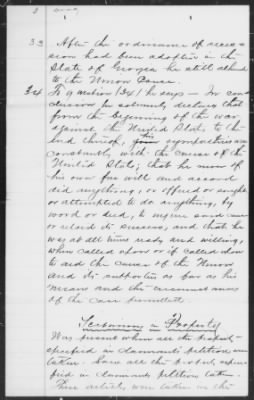 33 After the ordinance of seces-
sion had been adopted in the
State of Georgia he still adhered
to the Union Cause.
34 To question (34) he says - In con-
clusion he solemnly declares that
from the beginning of the war
against the United States to the
end thereof, his sympathies were
constantly with the cause of the
United States; that he never of
his own free will and accord
did anything, or offered or sought
or attempted to do anything, by
word or deed, to injure said cause
or retard its success, and that he
was at all times ready and willing,
when called upon or if called upon
to aid the cause of the Union
and its supporters as far as his
means and the circumstances
of the case permitted.
Testimony in Property
Was present when all the property
specified in claimants petition was
taken. Saw all the property speci-
fied in claimants petition taken.
These articles were taken in the